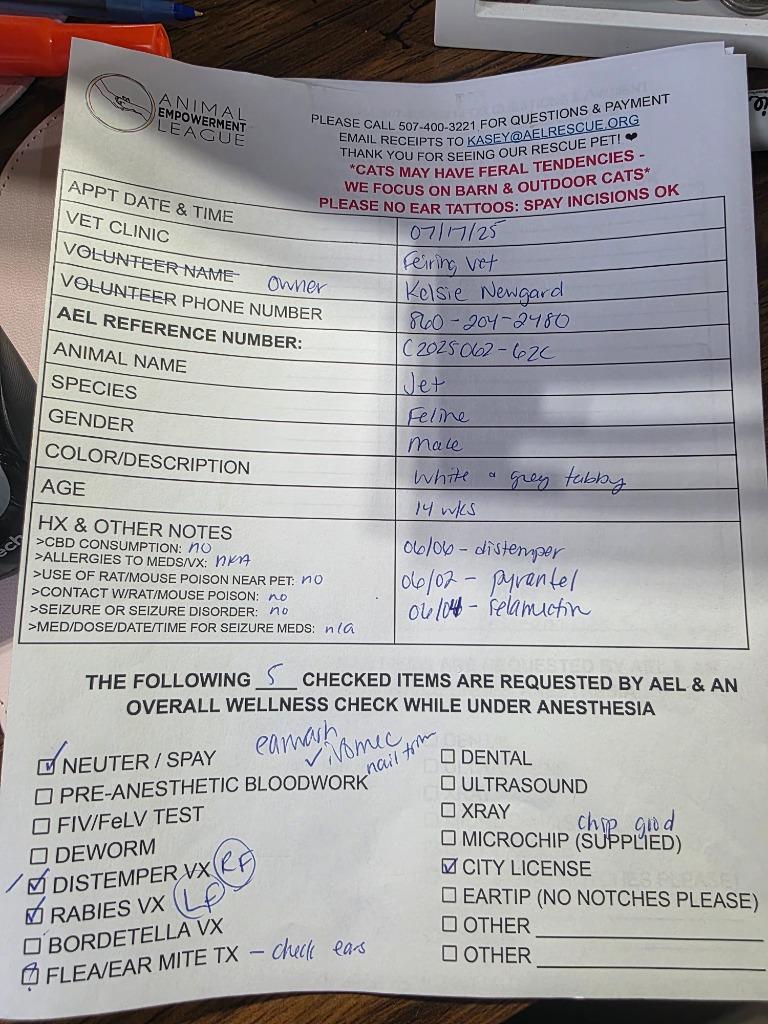 ANIMAL
EMPOWERMENT
LEAGUE
PLEASE CALL 507-400-3221 FOR QUESTIONS & PAYMENT
EMAIL RECEIPTS TO KASEY@AELRESCUE.ORG
THANK YOU FOR SEEING OUR RESCUE PET! ❤
*CATS MAY HAVE FERAL TENDENCIES -
WE FOCUS ON BARN & OUTDOOR CATS*
PLEASE NO EAR TATTOOS: SPAY INCISIONS OK
APPT DATE & TIME 07/17/25
VET CLINIC Feiring Vet
VOLUNTEER NAME Owner Kelsie Newgard
VOLUNTEER PHONE NUMBER 860-204-2480
AEL REFERENCE NUMBER: C2025062-62C
ANIMAL NAME Jet
SPECIES Feline
GENDER Male
COLOR/DESCRIPTION White & grey tabby
AGE 14 wks
HX & OTHER NOTES
>CBD CONSUMPTION: no
>ALLERGIES TO MEDS/VX: nka
>USE OF RAT/MOUSE POISON NEAR PET: no
>CONTACT W/RAT/MOUSE POISON: no
>SEIZURE OR SEIZURE DISORDER: no
>MED/DOSE/DATE/TIME FOR SEIZURE MEDS: n/a
06/06 - distemper
06/02 - pyrantel
06/04 - selamectin
THE FOLLOWING 5 CHECKED ITEMS ARE REQUESTED BY AEL & AN
OVERALL WELLNESS CHECK WHILE UNDER ANESTHESIA
✓ NEUTER / SPAY
earwash
✓ ivomec
nail trim
PRE-ANESTHETIC BLOODWORK
FIV/FeLV TEST
DEWORM
✓ DISTEMPER VX RF
✓ RABIES VX LF
BORDETELLA VX
? FLEA/EAR MITE TX - check ears
DENTAL
ULTRASOUND
XRAY
chip good
MICROCHIP (SUPPLIED)
✓ CITY LICENSE
EARTIP (NO NOTCHES PLEASE)
OTHER
OTHER